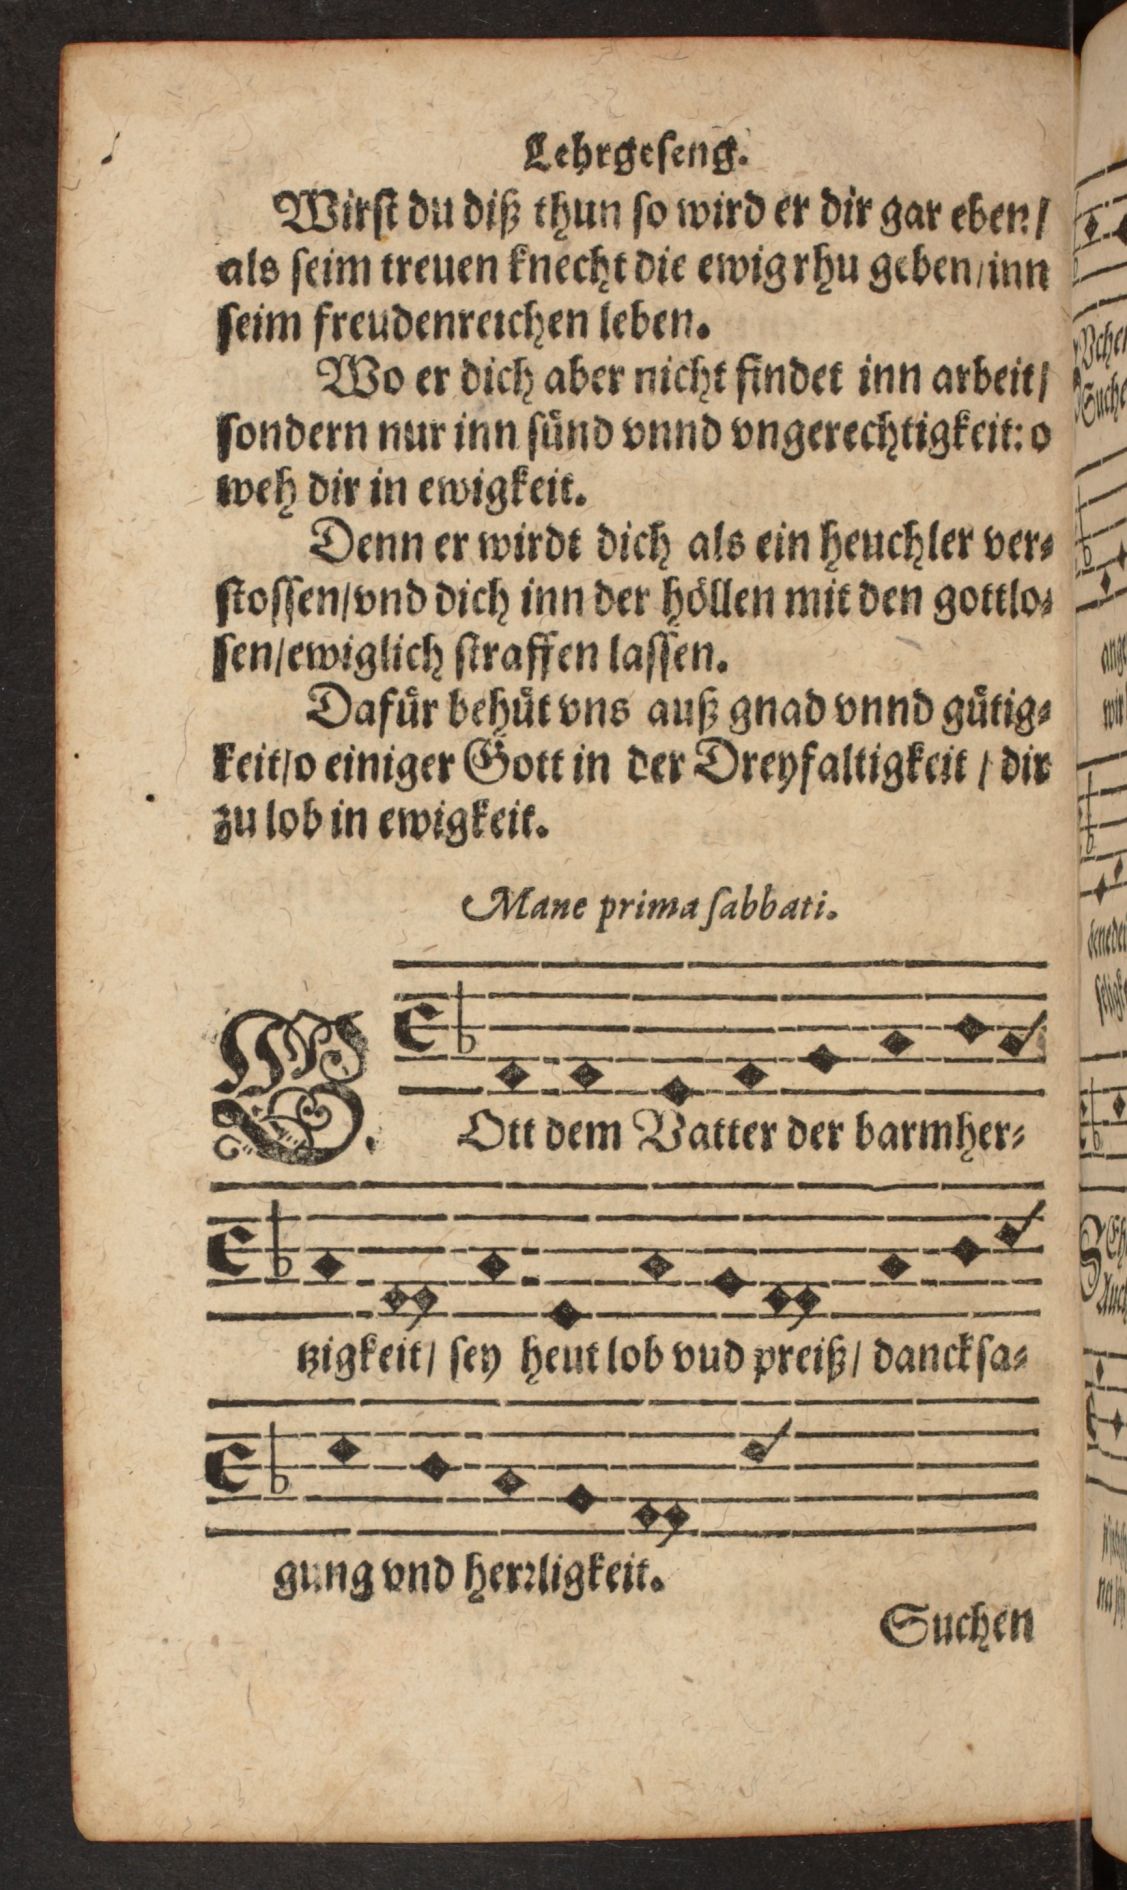 Lehrgeseng.
Wirst du diß thun so wird er dir gar eben/
als seim treuen knecht die ewig rhu geben/inn
seim freudenreichen leben.
Wo er dich aber nicht findet inn arbeit/
sondern nur inn sünd vnnd vngerechtigkeit: o
weh dir in ewigkeit.
Denn er wirdt dich als ein heuchler ver⸗
stossen/vnd dich inn der höllen mit den gottlo⸗
sen/ewiglich straffen lassen.
Dafür behüt vns auß gnad vnnd gütig⸗
keit/o einiger Gott in der Dreyfaltigkeit / dir
zu lob in ewigkeit.
Mane prima sabbati.
G Ott dem Vatter der barmher⸗
tzigkeit/ sey heut lob vud preiß/ dancksa⸗
gung vnd herrligkeit.
Suchen